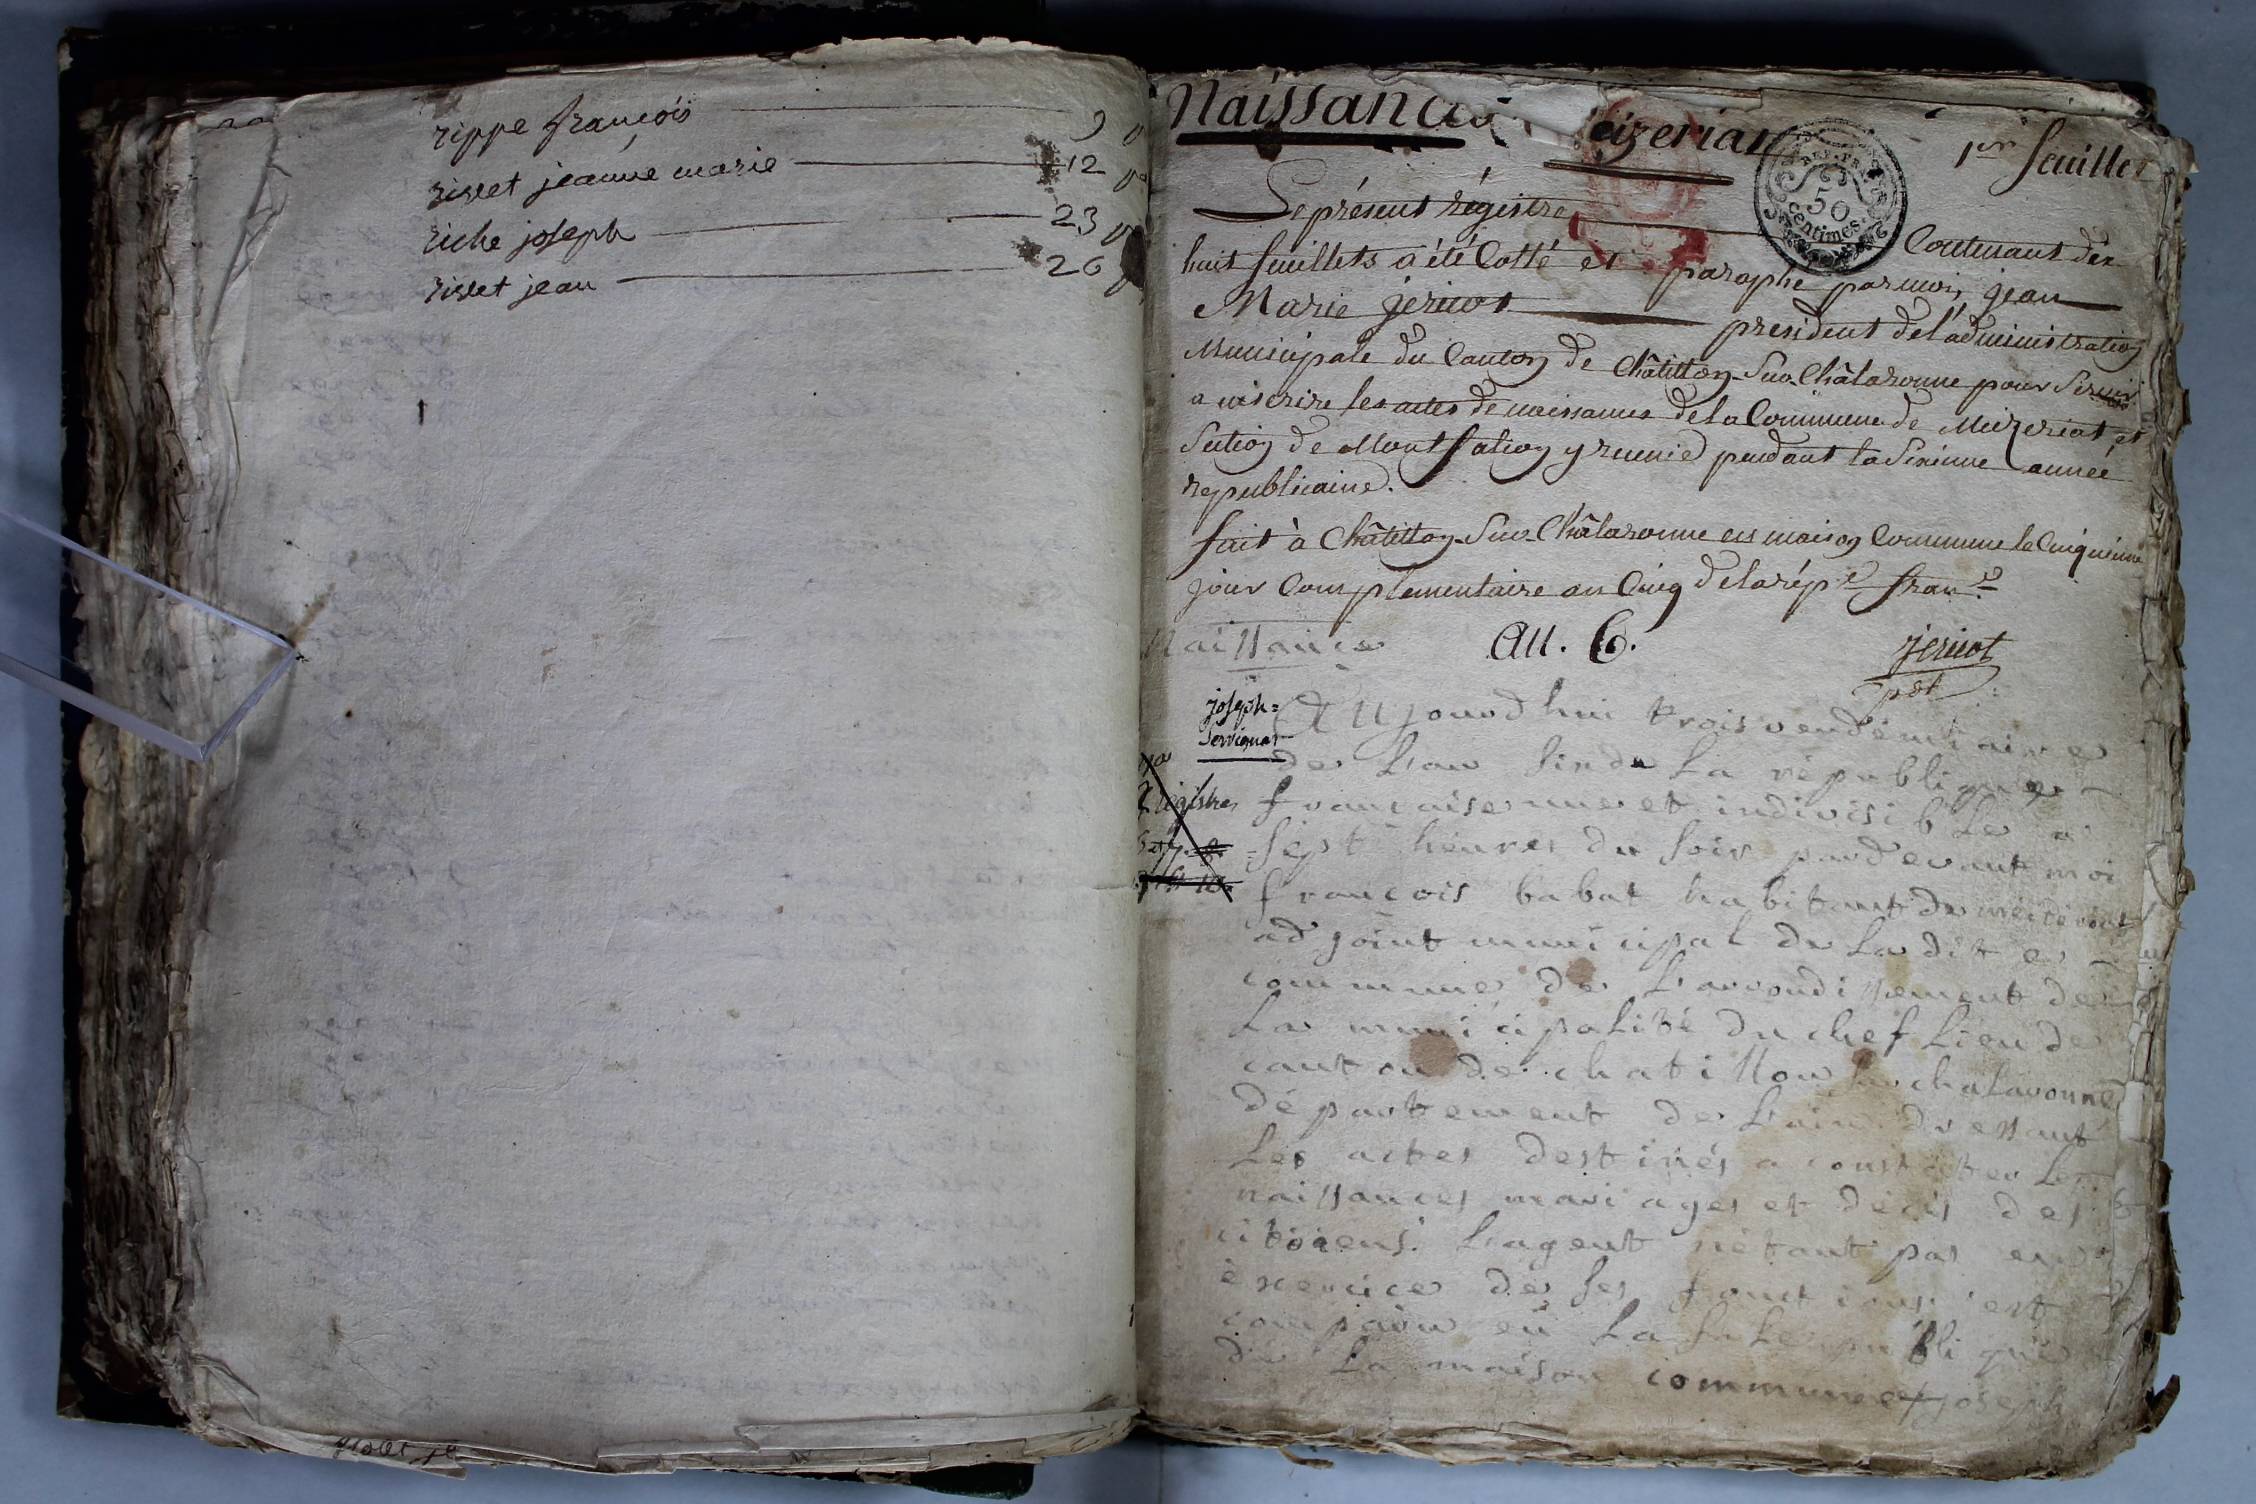 rippe françois 9
risset jeanne marie 12
riche joseph 23
risset jean 26
Naissances
1er feuillet
REP. FR.
50
centimes
Le présent régistre contenant dix
huit feuillets a été Cotté et paraphé par moi, jean
Marie jerivot président de l'administration
Municipale du Canton de Châtillon-Sur-Châlaronne pour Servir
a inscrire les actes de naissances de la Commune de Mézériat et
Section de Montfalcon y reunie pendant la Sixieme année
republicaine.
fait à Châtillon-Sur-Châlaronne en maison Commune le Cinquième
jour Complementaire an Cinq de la rép.e fran.e
Naissance an. 6.
pdt
joseph=
Aujourdhui trois vendémiaire
de L'an Six de La république
françaises une et indivisible a
Sept heures du Soir pardevant moi
françois babat habitant de
adjoint municipal de La dite
commune de L'arrondissement de
La municipalité du chef Lieu de
canton de chatillon sur chalaronne
département de L'ain dressant
Les actes destinés a constater Les
naissances mariages et décès des
citoiens. L'agent n'étant pas en
exercice de ses fonctions est
comparu en La Sale publique
de La maison commune joseph
registres